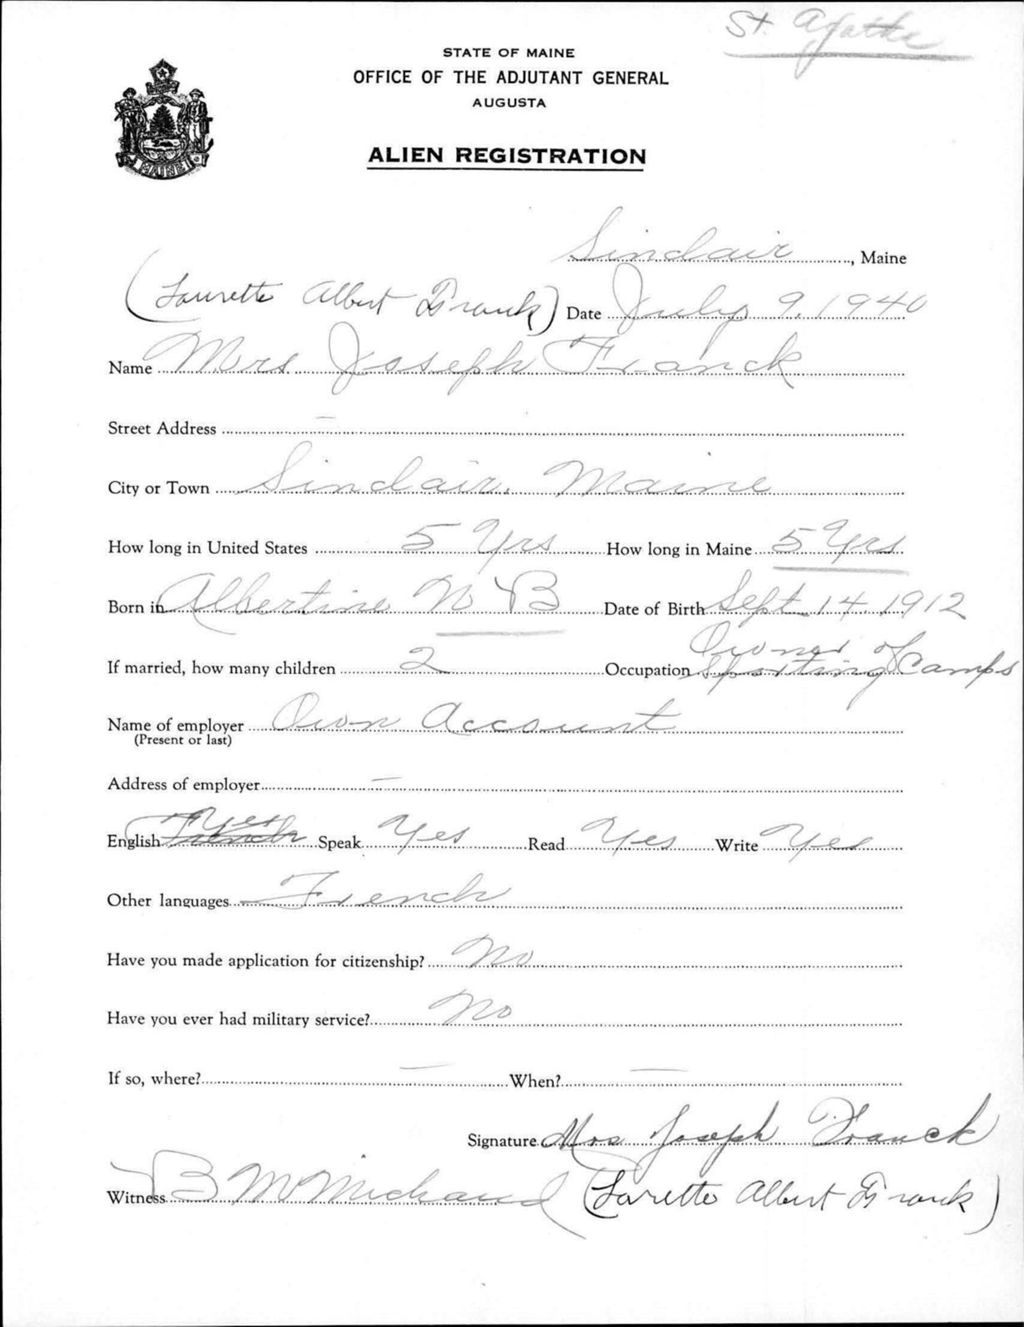 St. Agatha
STATE OF MAINE
OFFICE OF THE ADJUTANT GENERAL
AUGUSTA
MAINE
ALIEN REGISTRATION
Sinclair, Maine
(Laurette Albert Franck) Date July 9, 1940
Name Mrs Joseph Franck
Street Address —
City or Town Sinclair, Maine
How long in United States 5 Yrs How long in Maine 5 Yrs
Born in Albertine N B Date of Birth Sept 14, 1912
If married, how many children 2 Occupation Owner of Sporting Camps
Name of employer Own Account
(Present or last)
Address of employer —
English Yes French Speak Yes Read Yes Write Yes
Other languages French
Have you made application for citizenship? No
Have you ever had military service? No
If so, where? — When? —
Signature Mrs Joseph Franck
Witness B M Michaud (Laurette Albert Franck)